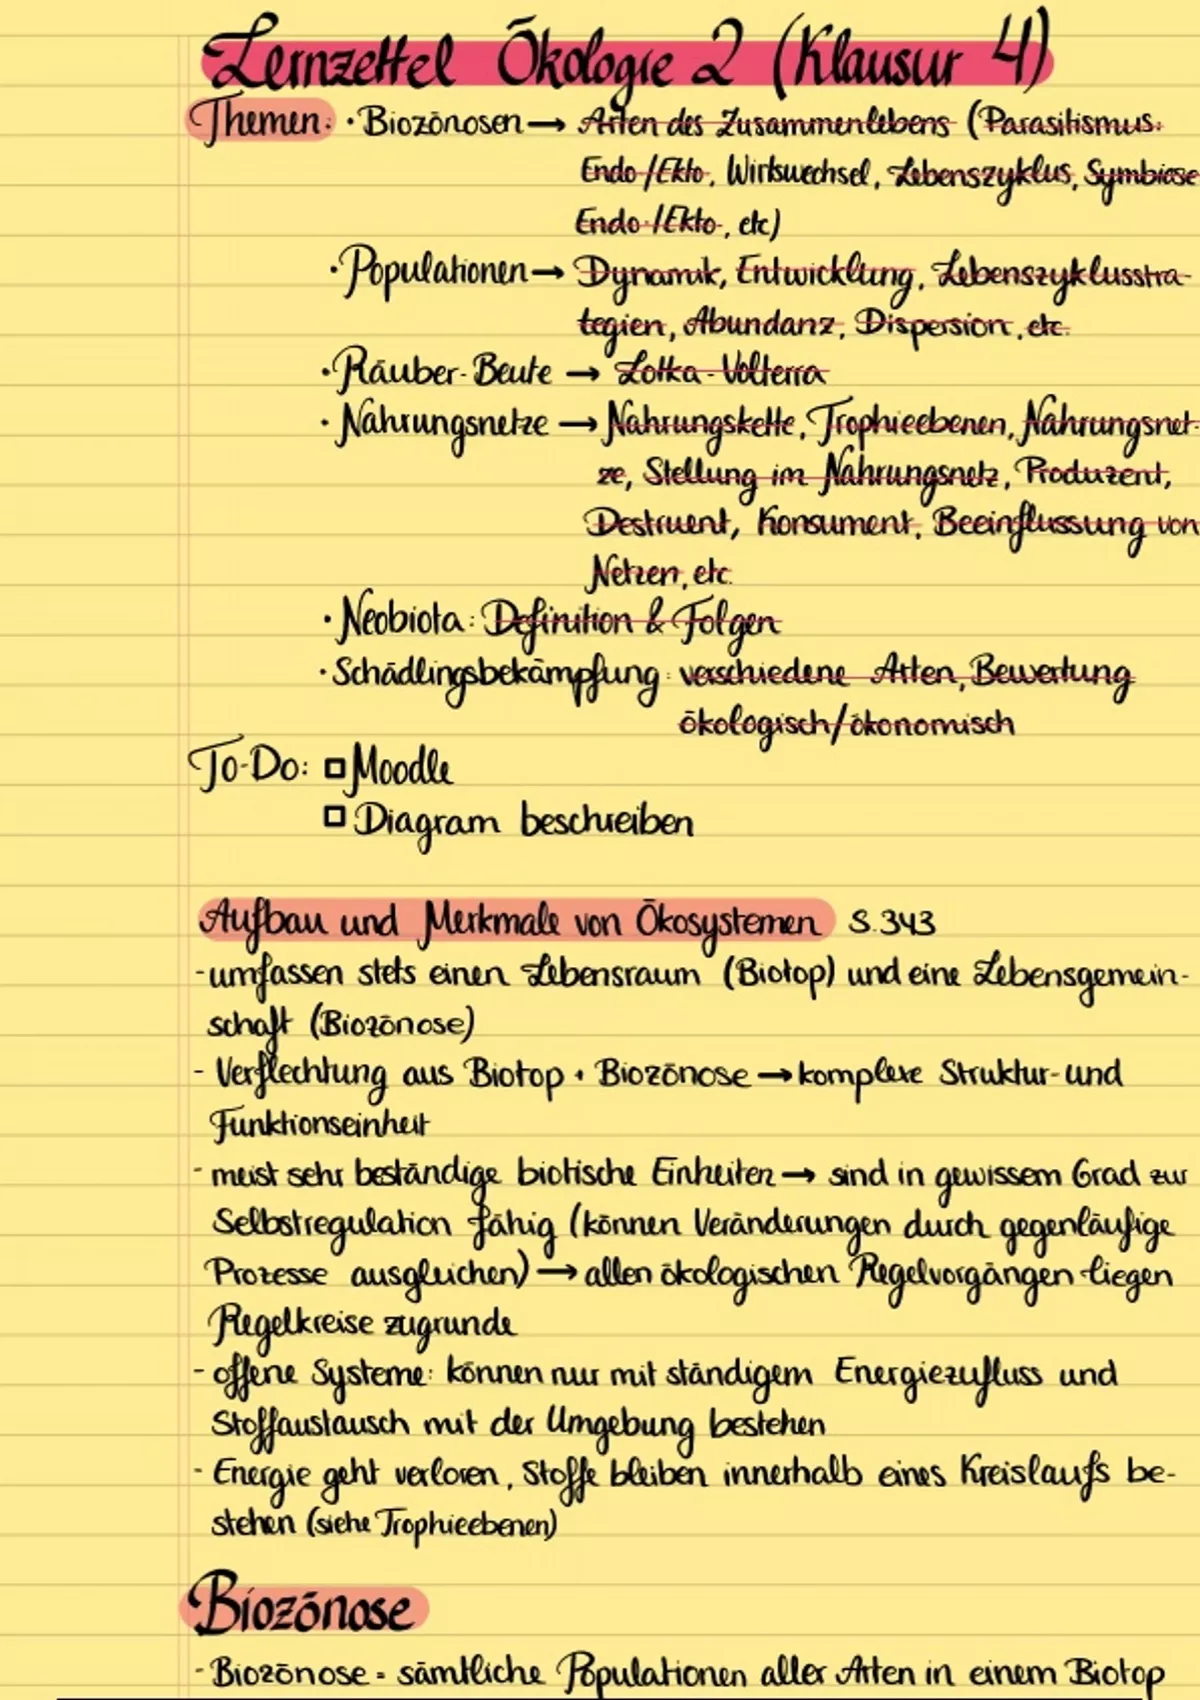 Lernzettel Ökologie 2 (Klausur 4)
Themen: · Biozönosen → Arten des Zusammenlebens (Parasitismus:
Endo/Ekto, Wirtswechsel, Lebenszyklus, Symbiose
Endo-/Ekto, etc)
· Populationen → Dynamik, Entwicklung, Lebenszyklusstra-
tegien, Abundanz, Dispersion, etc.
· Räuber-Beute → Lotka-Volterra
· Nahrungsnetze → Nahrungskette, Trophieebenen, Nahrungsnet-
ze, Stellung im Nahrungsnetz, Produzent,
Destruent, Konsument, Beeinflussung von
Netzen, etc.
· Neobiota: Definition & Folgen
· Schädlingsbekämpfung: verschiedene Arten, Bewertung
ökologisch/ökonomisch
To-Do: □ Moodle
□ Diagram beschreiben
Aufbau und Merkmale von Ökosystemen S.343
- umfassen stets einen Lebensraum (Biotop) und eine Lebensgemein-
schaft (Biozönose)
- Verflechtung aus Biotop + Biozönose → komplexe Struktur- und
Funktionseinheit
- meist sehr beständige biotische Einheiten → sind in gewissem Grad zur
Selbstregulation fähig (können Veränderungen durch gegenläufige
Prozesse ausgleichen) → allen ökologischen Regelvorgängen liegen
Regelkreise zugrunde
- offene Systeme: können nur mit ständigem Energiezufluss und
Stoffaustausch mit der Umgebung bestehen
- Energie geht verloren, Stoffe bleiben innerhalb eines Kreislaufs be-
stehen (siehe Trophieebenen)
Biozönose
- Biozönose = sämtliche Populationen aller Arten in einem Biotop